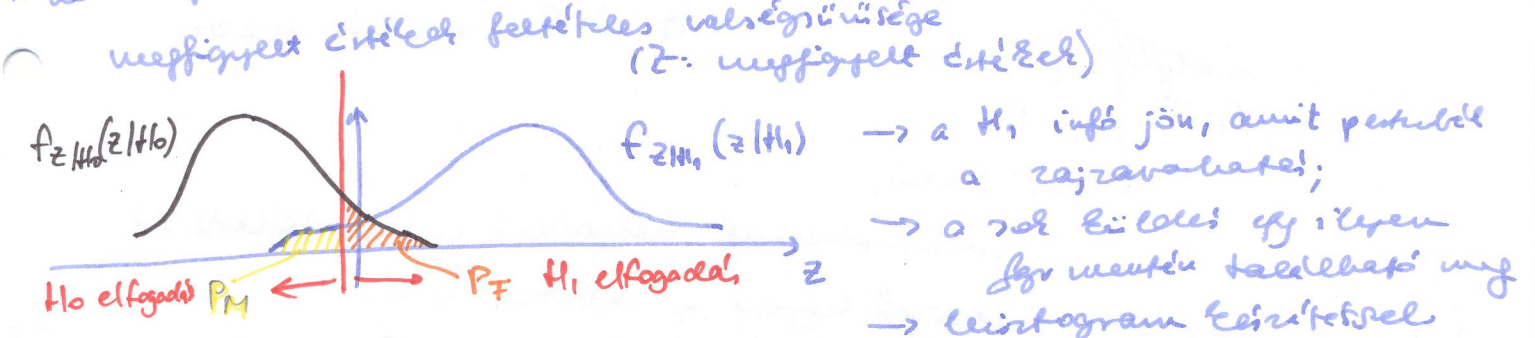 megfigyelt értékek feltételes valségsűrűsége
(Z: megfigyelt értékek)
f_{Z|H0}(z|H0)
f_{Z|H1}(z|H1)
→ a H1 infó jön, amit perturbál
a zajzavarhatás;
→ a sok küldés egy ilyen
fgv mentén található meg
→ hisztogram készítéssel
H0 elfogadás PM
PF H1 elfogadás
Z